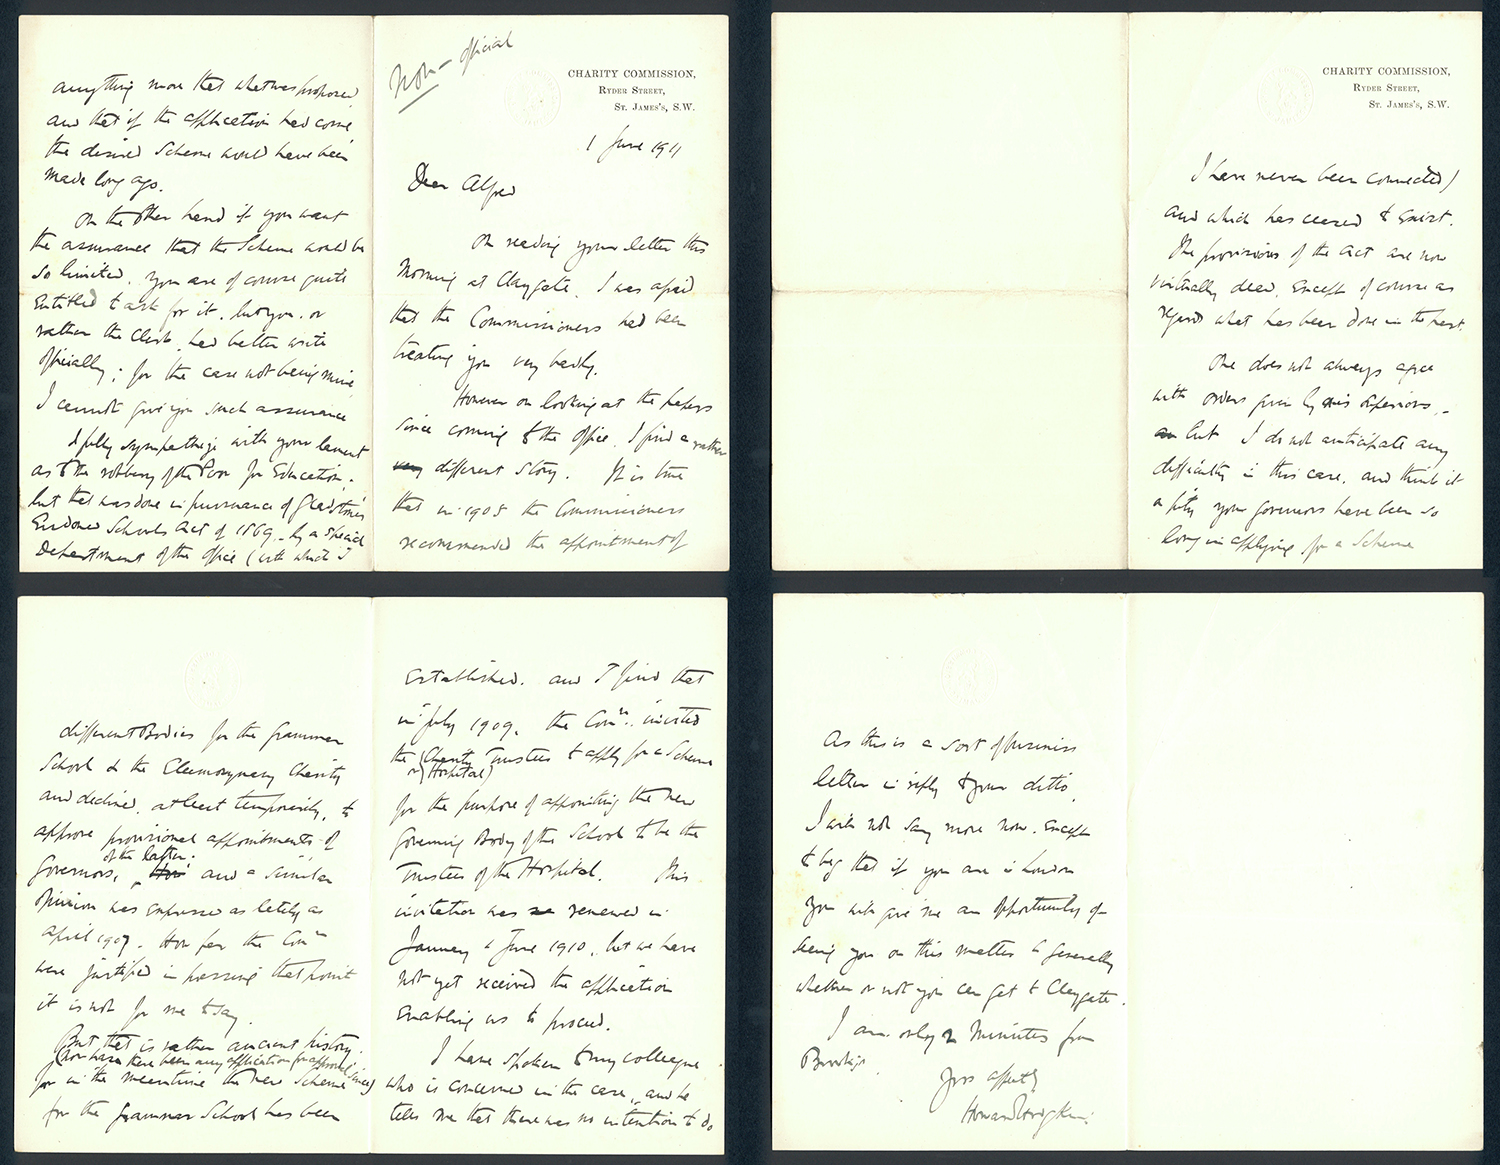 Non-official
CHARITY COMMISSION,
RYDER STREET,
ST. JAMES'S, S.W.
1 June 1911
Dear Alfred
On reading your letter this
morning at Claygate, I was afraid
that the Commissioners had been
treating you very badly.
However on looking at the papers
since coming to the office, I find a rather
very different story. It is true
that in 1905 the Commissioners
recommended the appointment of
different Bodies for the Grammar
School & the Eleemosynary Charity
and declined, at least temporarily, to
approve provisional appointments of
Governors, of the latter, and a similar
opinion was expressed as lately as
April 1907. How far the Comrs
were justified in pressing that point
it is not for me to say.
But that is rather ancient history.
(Nor have there been any application for approval since)
for in the meantime the new Scheme
for the Grammar School has been
established. and I find that
in July 1909, the Comrs. invited
the (Charity Trustees to apply for a Scheme
or Hospital)
for the purpose of appointing the new
Governing Body of the School to be the
Trustees of the Hospital. This
invitation was renewed in
January & June 1910, but we have
not yet received the application
enabling us to proceed.
I have spoken to my colleague
who is concerned in the case, and he
tells me that there was no intention to do
anything more that what was proposed
and that if the application had come
the desired Scheme would have been
made long ago.
On the other hand if you want
the assurance that the Scheme would be
so limited, you are of course quite
entitled to ask for it, but you, or
rather the Clerk, had better write
officially; for the case not being mine
I cannot give you such assurance
I fully sympathize with your lament
as to the robbery of the Poor for Education,
but that was done in pursuance of Gladstone's
Endowed Schools Act of 1869 - by a special
Department of the office (with which I
CHARITY COMMISSION,
RYDER STREET,
ST. JAMES'S, S.W.
I have never been connected)
and which has ceased to exist.
The provisions of the Act are now
virtually dead, except of course as
regards what has been done in the past.
One does not always agree
with orders given by one's superiors, -
but I do not anticipate any
difficulty in this case, and think it
a pity your Governors have been so
long in applying for a Scheme
As this is a sort of business
letter in reply to your ditto,
I will not say more now, except
to beg that if you are in London
you will give me an opportunity of
seeing you on this matter & generally
whether or not you can get to Claygate.
I am only 2 minutes from
Yrs affectly
Howard Hodgkin